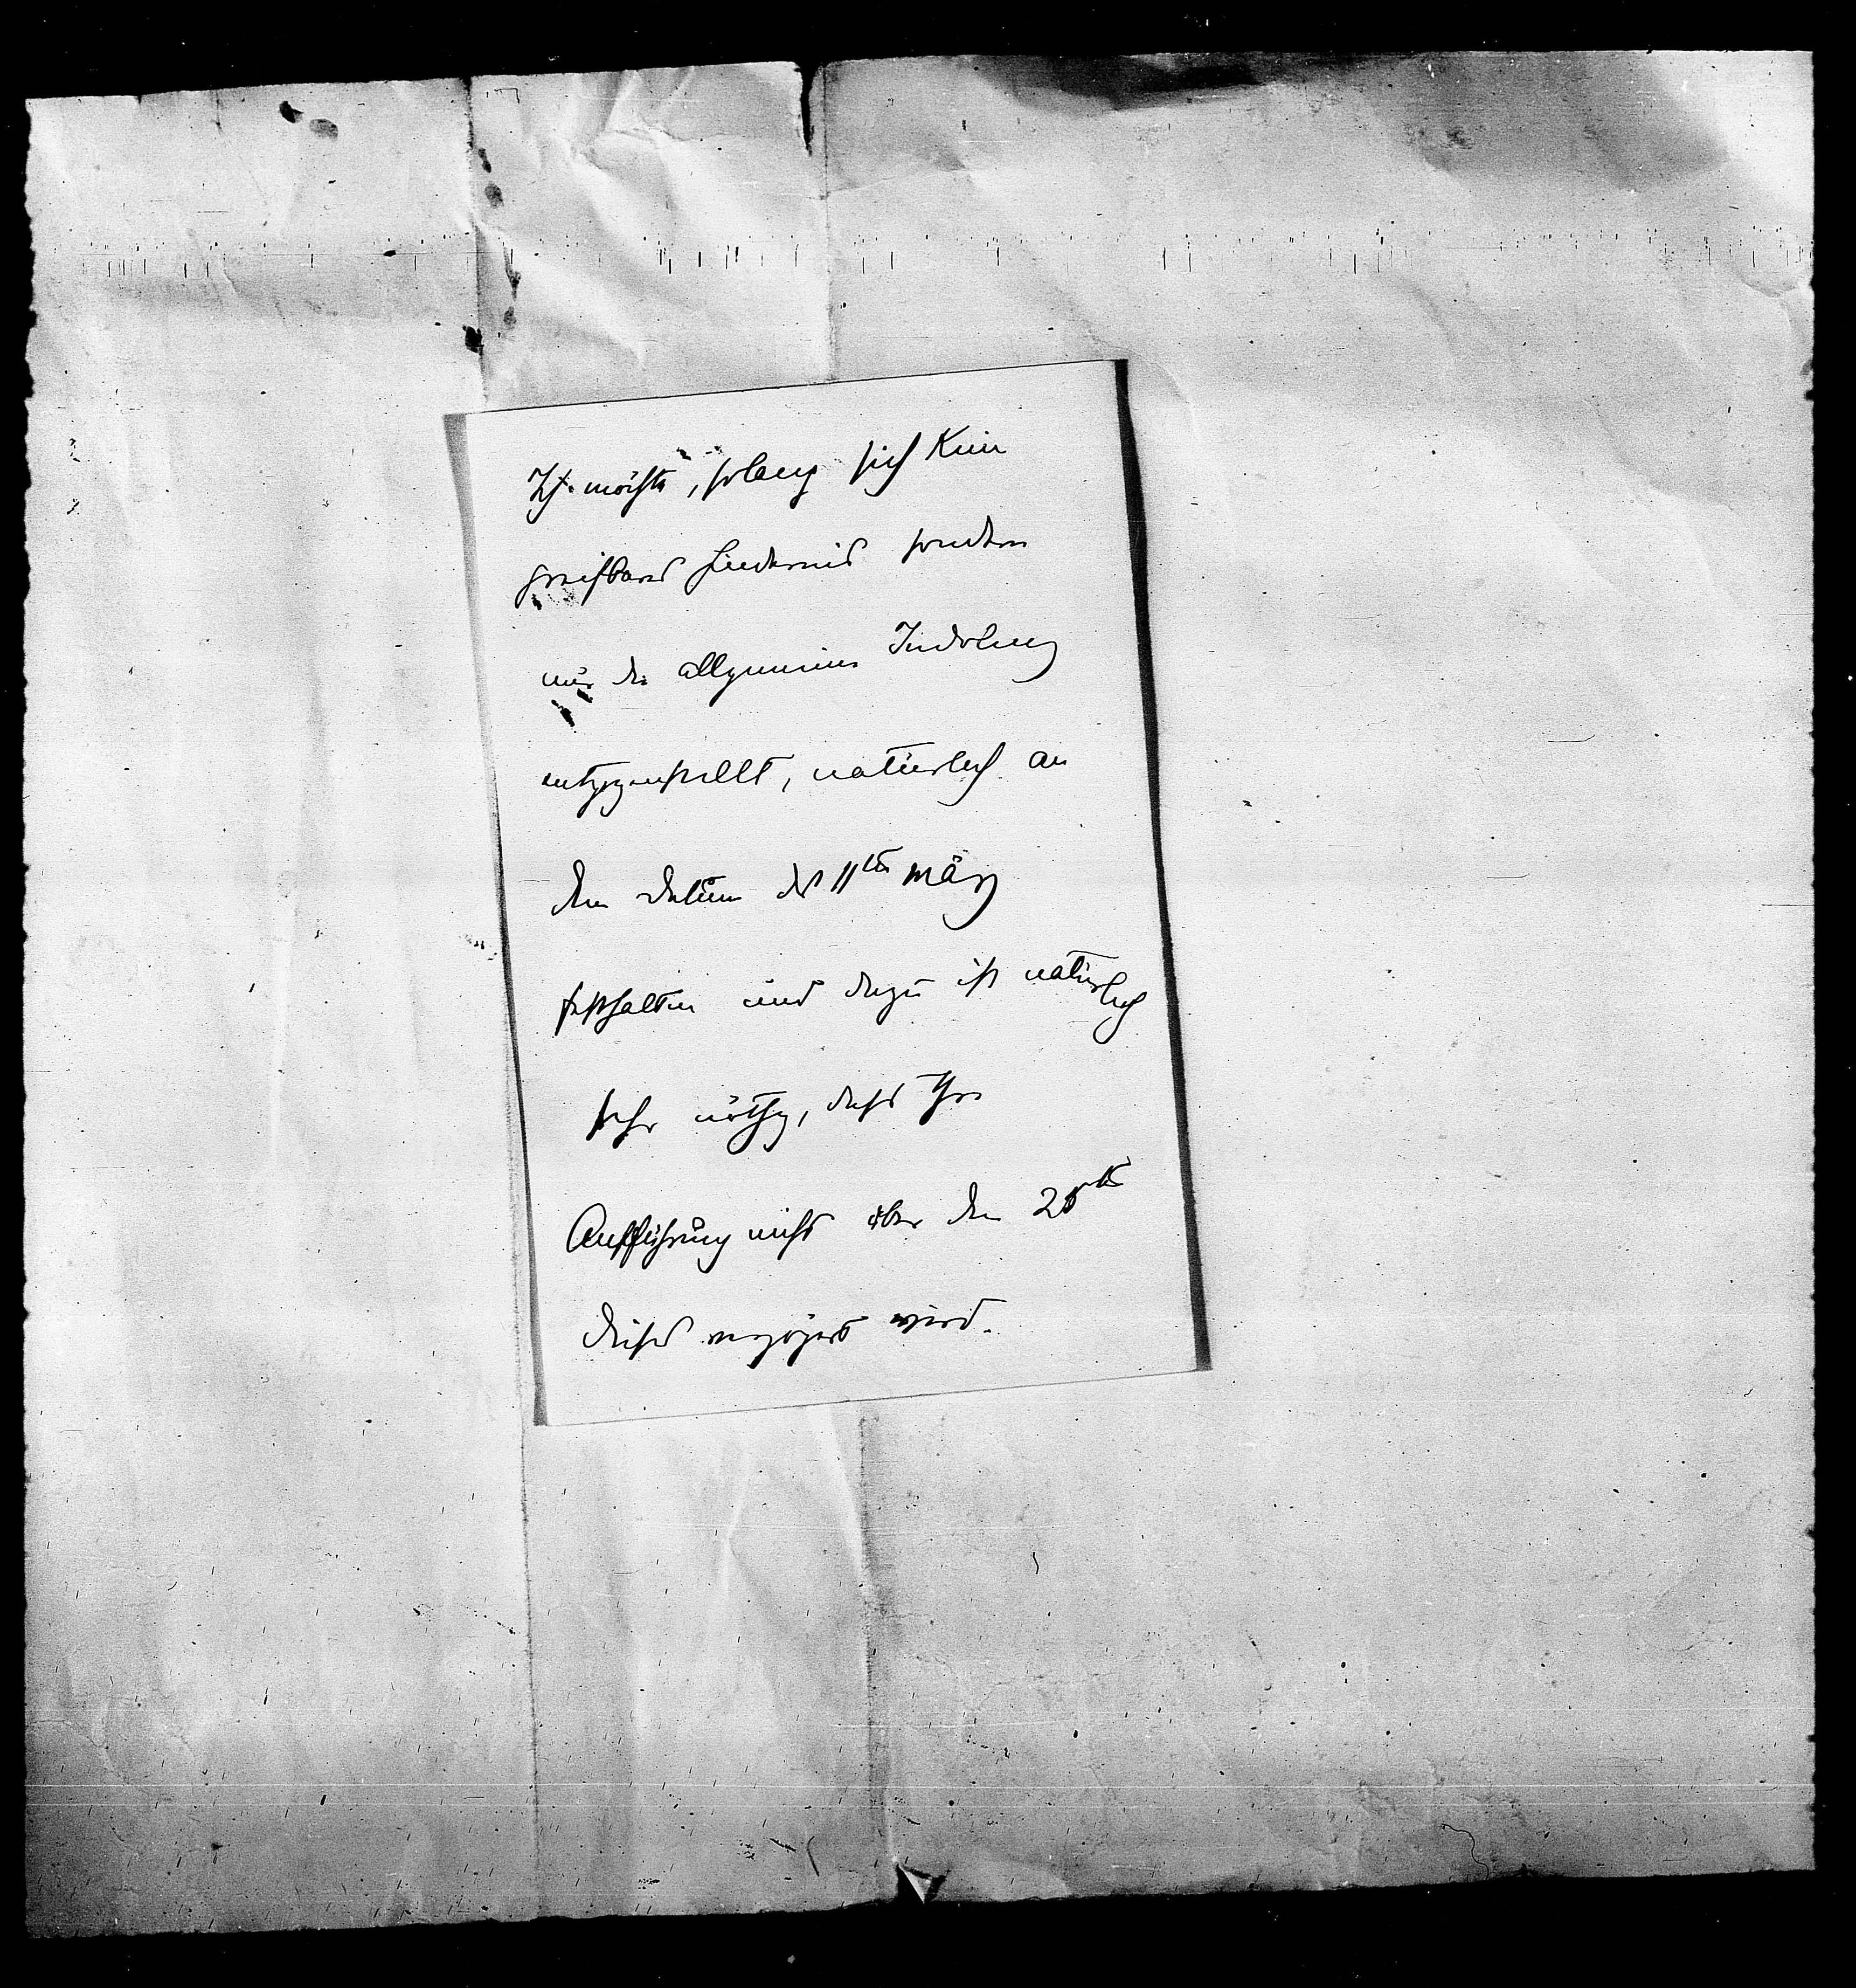 Ich möchte, solang sich kein
greifbares Hindernis sondern
nur die allgemeine Indolenz
entgegenstellt, natürlich an
dem Datum des 11ten März
festhalten und dazu ist natürlich
sehr nöthig, dass Ihre
Aufführung nicht über den 25ten
dieses verzögert wird.